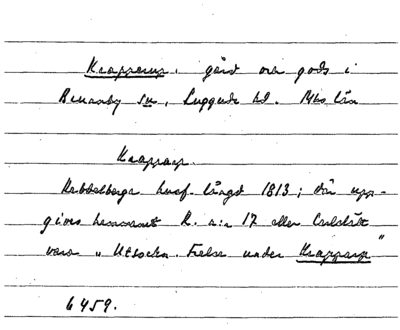 Krapperup, gård och gods i
Brunnby sn, Luggude hd. Mhs län
Krapparp.
Kabbelberga husf. längd 1813; där upp-
gives hemmanet N. a:r 17 eller
vara "Utsockn. Frelse under Krapparp"
6459.